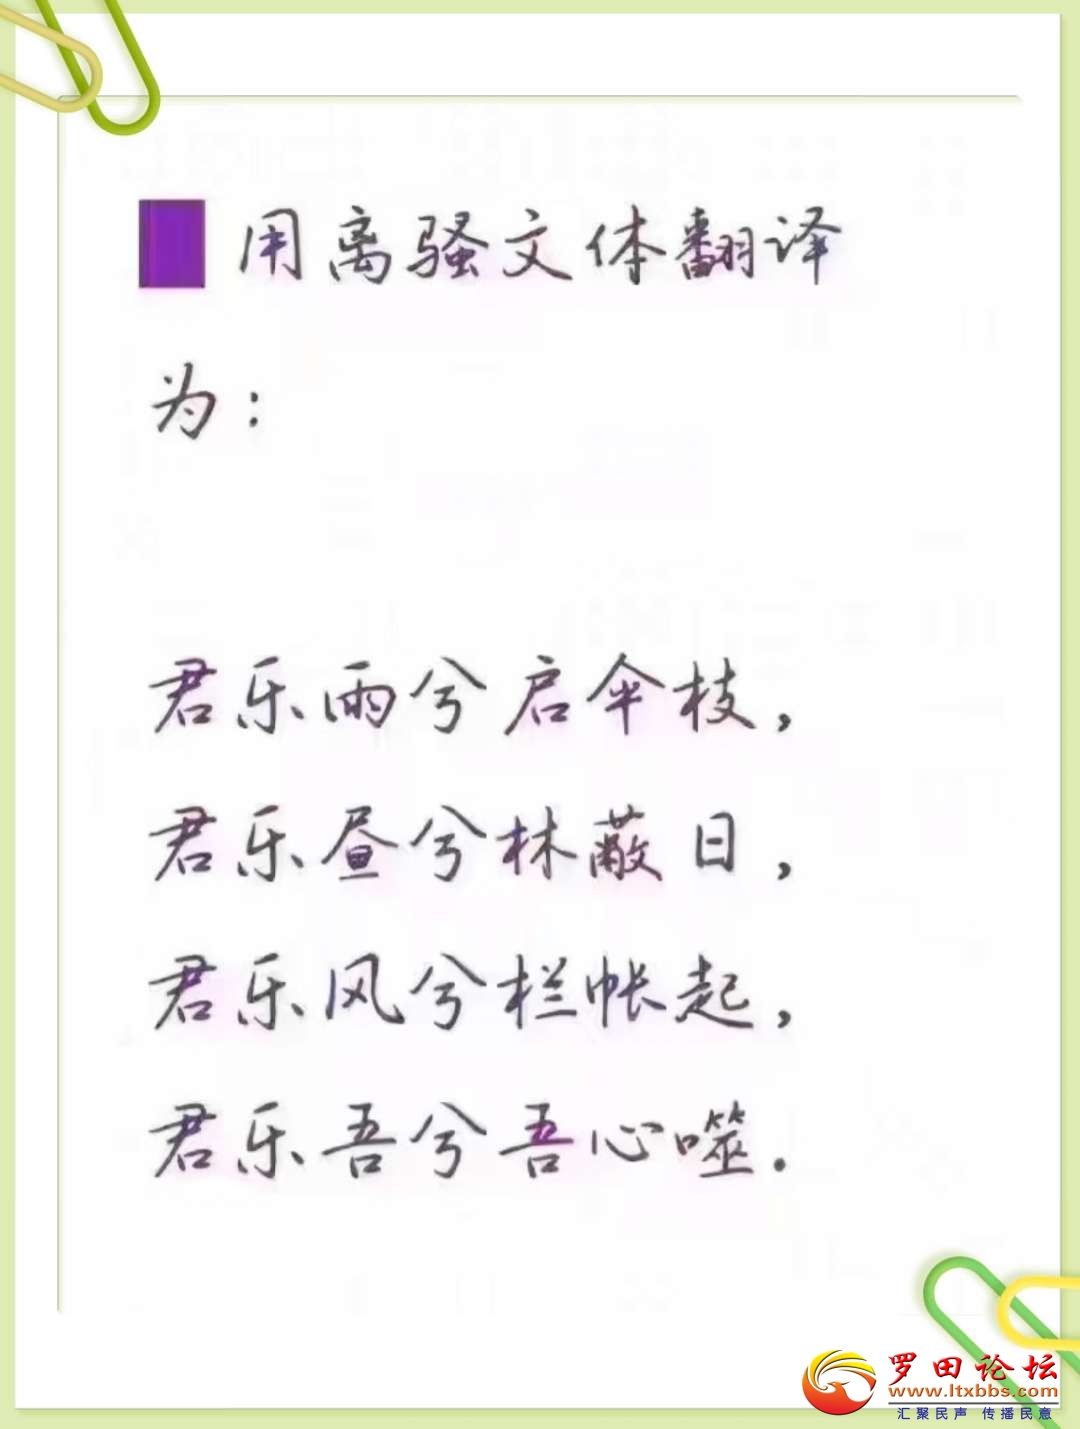 用离骚文体翻译
为：
君乐雨兮启伞枝，
君乐昼兮林蔽日，
君乐风兮栏帐起，
君乐吾兮吾心噬.
罗田论坛
www.ltxbbs.com
汇聚民声 传播民意